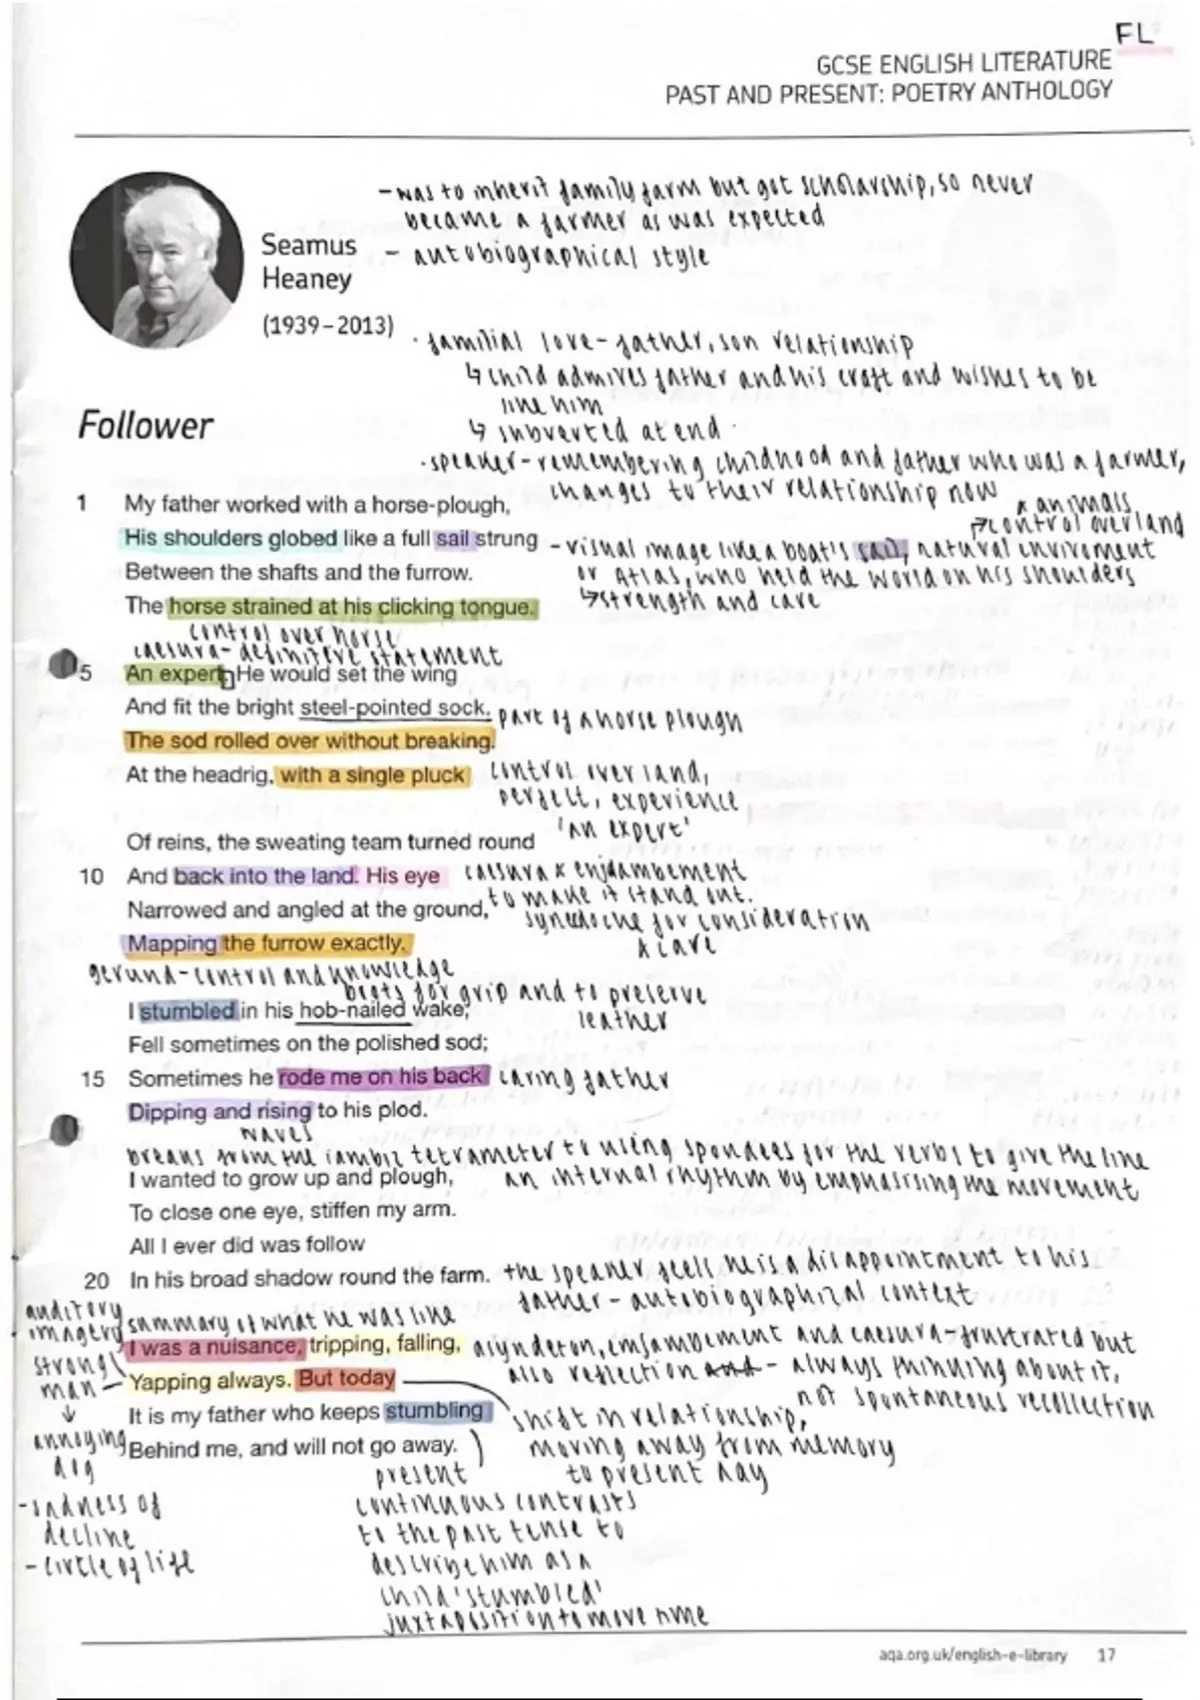 FL
GCSE ENGLISH LITERATURE
PAST AND PRESENT: POETRY ANTHOLOGY
- was to inherit family farm but got scholarship, so never
became a farmer as was expected
Seamus
Heaney
- autobiographical style
(1939–2013)
· familial love - father, son relationship
↳ child admires father and his craft and wishes to be
like him
Follower
↳ subverted at end
· speaker - remembering childhood and father who was a farmer,
changes to their relationship now
1 My father worked with a horse-plough,
x animals
→ control over land
His shoulders globed like a full sail strung
- visual image like a boat's sail, natural enviroment
Between the shafts and the furrow.
or Atlas, who held the world on his shoulders
The horse strained at his clicking tongue.
↳ strength and care
control over horse
caesura - definitive statement
5 An expert. He would set the wing
And fit the bright steel-pointed sock.
part of a horse plough
The sod rolled over without breaking.
At the headrig, with a single pluck
control over land,
perfect, experience
'an expert'
Of reins, the sweating team turned round
10 And back into the land. His eye
caesura x enjambement
to make it stand out.
Narrowed and angled at the ground,
synedoche for consideration
& care
Mapping the furrow exactly.
gerund - control and knowledge
boots for grip and to preserve
leather
I stumbled in his hob-nailed wake,
Fell sometimes on the polished sod;
15 Sometimes he rode me on his back
caring father
Dipping and rising to his plod.
waves
breaks from the iambic tetrameter to using spondees for the verbs to give the line
an internal rhythm by emphasising the movement
I wanted to grow up and plough,
To close one eye, stiffen my arm.
All I ever did was follow
20 In his broad shadow round the farm.
the speaker feels he is a disappointment to his
father - autobiographical context
auditory
imagery
summary of what he was like
I was a nuisance, tripping, falling,
asyndeton, enjambement and caesura - frustrated but
also reflection and - always thinking about it,
not spontaneous recollection
strong
man
↓
annoying
dog
Yapping always. But today
It is my father who keeps stumbling
shift in relationship,
moving away from memory
to present day
Behind me, and will not go away.
present
continuous contrasts
to the past tense to
describe him as a
child 'stumbled'
juxtaposition to move time
- sadness of
decline
- circle of life
aqa.org.uk/english-e-library 17